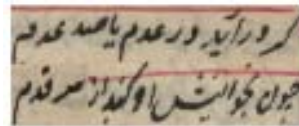 گر در آید در عدم یا صد عدم
چون بخوانیش او کند از سر قدم